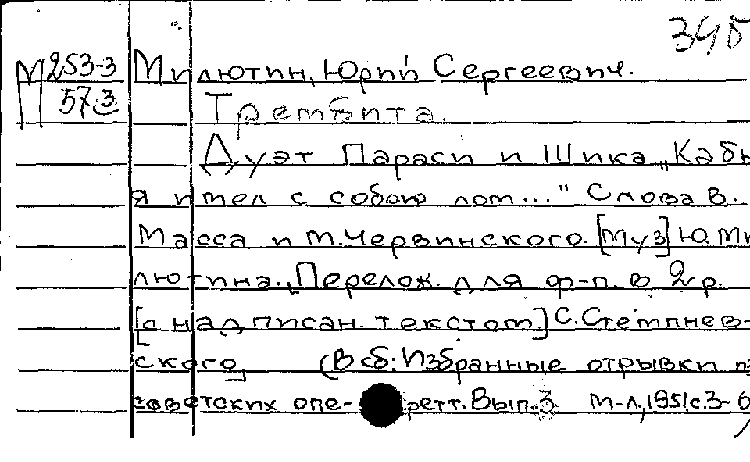 345
М 253-3 Милютин, Юрий Сергеевич.
57 3 Трембита.
Дуэт Параси и Шика „Кабы
я имел с собою лом..." Слова В.
Масса и М. Червинского. [Муз] Ю. Ми
лютина. Перелож. для ф-п. в 2 р.
[с надписан. текстом.] С. Стемпнев-
ского. (В сб: Избранные отрывки из
советских опе- ретт. Вып. 3 М-Л, 1951 с. 3-